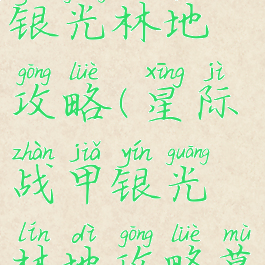 银光林地
gōng lüè xīng jì
攻略(星际
zhàn jiǎ yín guāng
战甲银光
lín dì gōng lüè mù
林地攻略幕